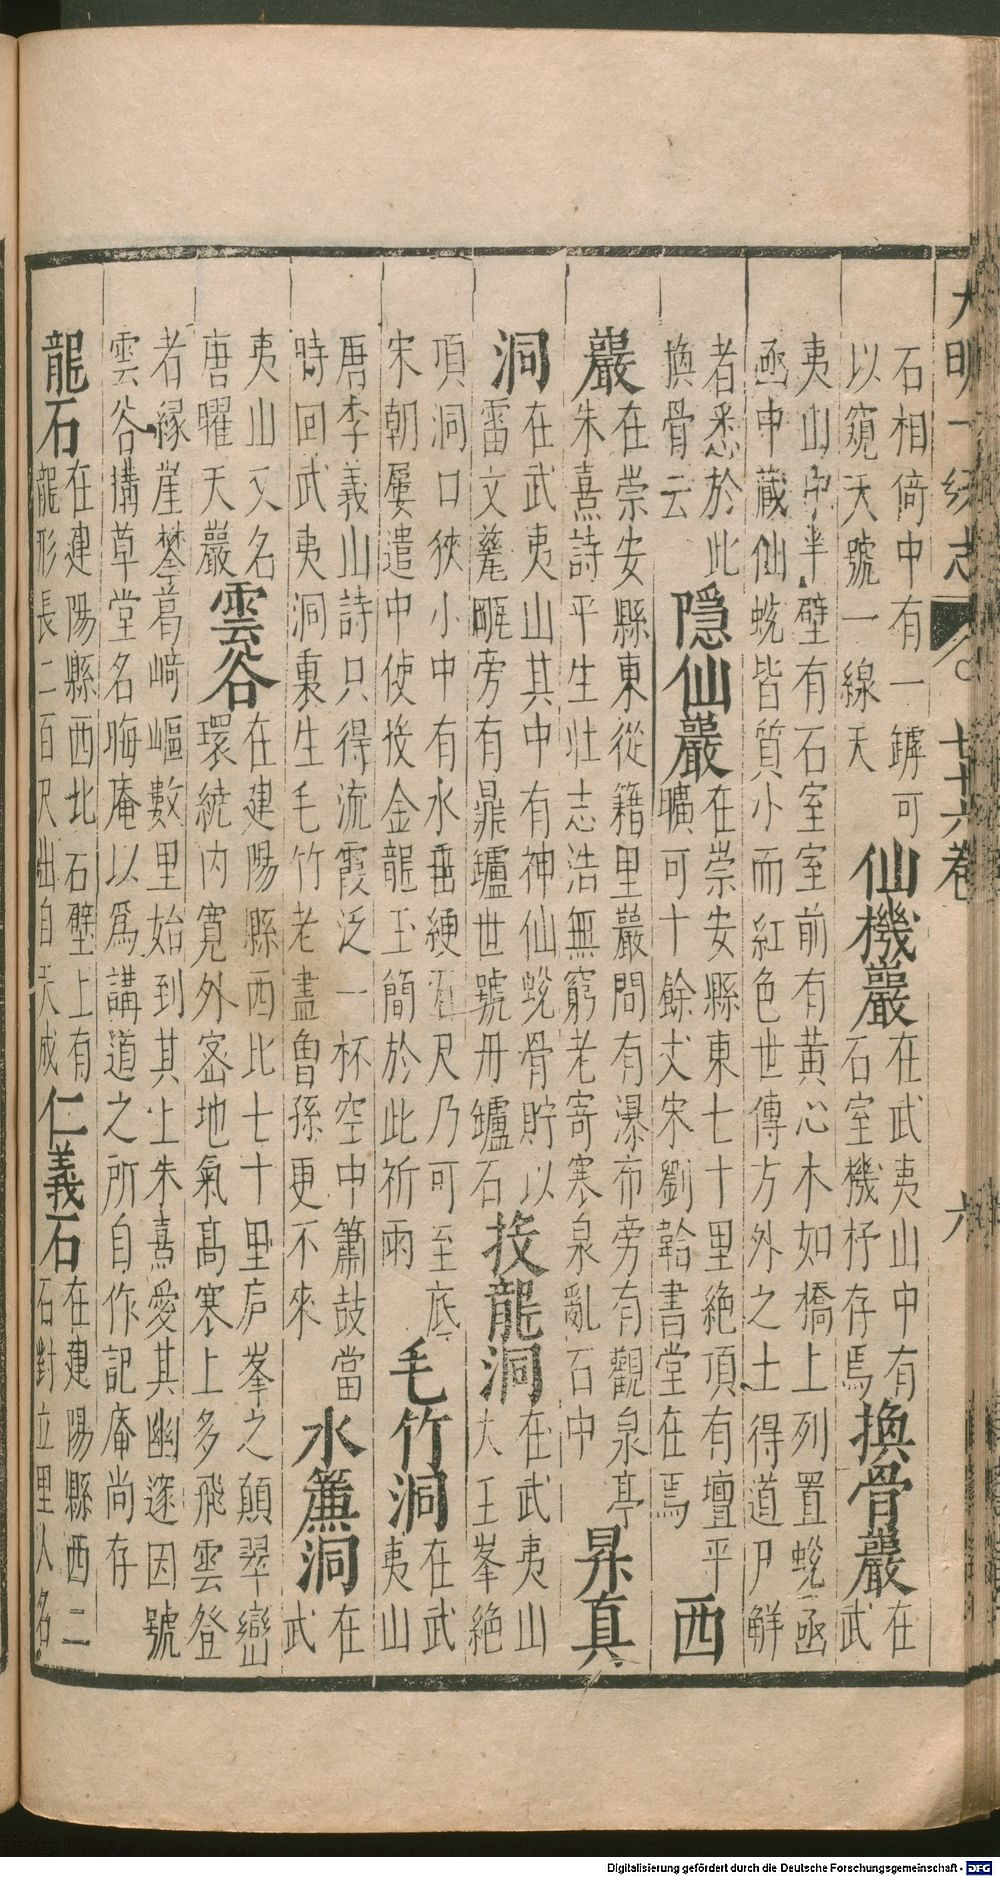 大明一統志 七十六卷 六
石相倚中有一罅可
以窺天號一線天
仙機巖
在武夷山中有
石室機杼存焉
換骨巖
在武
夷山中半壁有石室室前有黃心木如橋上列置蛻函
函中藏仙蛻皆質小而紅色世傳方外之士得道尸解
者悉於此
換骨云
隱仙巖
在崇安縣東七十里絶頂有壇平
曠可十餘丈宋劉韐書堂在焉
西
巖
在崇安縣東從籍里巖間有瀑布旁有觀泉亭
朱熹詩平生壯志浩無窮老寄寒泉亂石中
昇真
洞
在武夷山其中有神仙蛻骨貯以
雷文甃甌旁有鼎罏世號丹罏石
投龍洞
在武夷山
大王峯絶
項洞口狹小中有水垂綆百尺乃可至底
宋朝屢遣中使投金龍玉簡於此祈雨
毛竹洞
在武
夷山
唐李義山詩只得流霞泛一杯空中簫鼓當
時回武夷洞裏生毛竹老盡曾孫更不來
水簾洞
在
武
夷山又名
唐曜天巖
雲谷
在建陽縣西北七十里庐峯之顛翠巒
環繞内寛外宻地氣高寒上多飛雲登
者緣崖攀葛崎嶇數里始到其上朱熹愛其幽邃因號
雲谷搆草堂名晦庵以爲講道之所自作記庵尚存
龍石
在建陽縣西北石壁上有
龍形長二百尺出自天成
仁義石
在建陽縣西二
石對立里人名
Digitalisierung gefördert durch die Deutsche Forschungsgemeinschaft - DFG